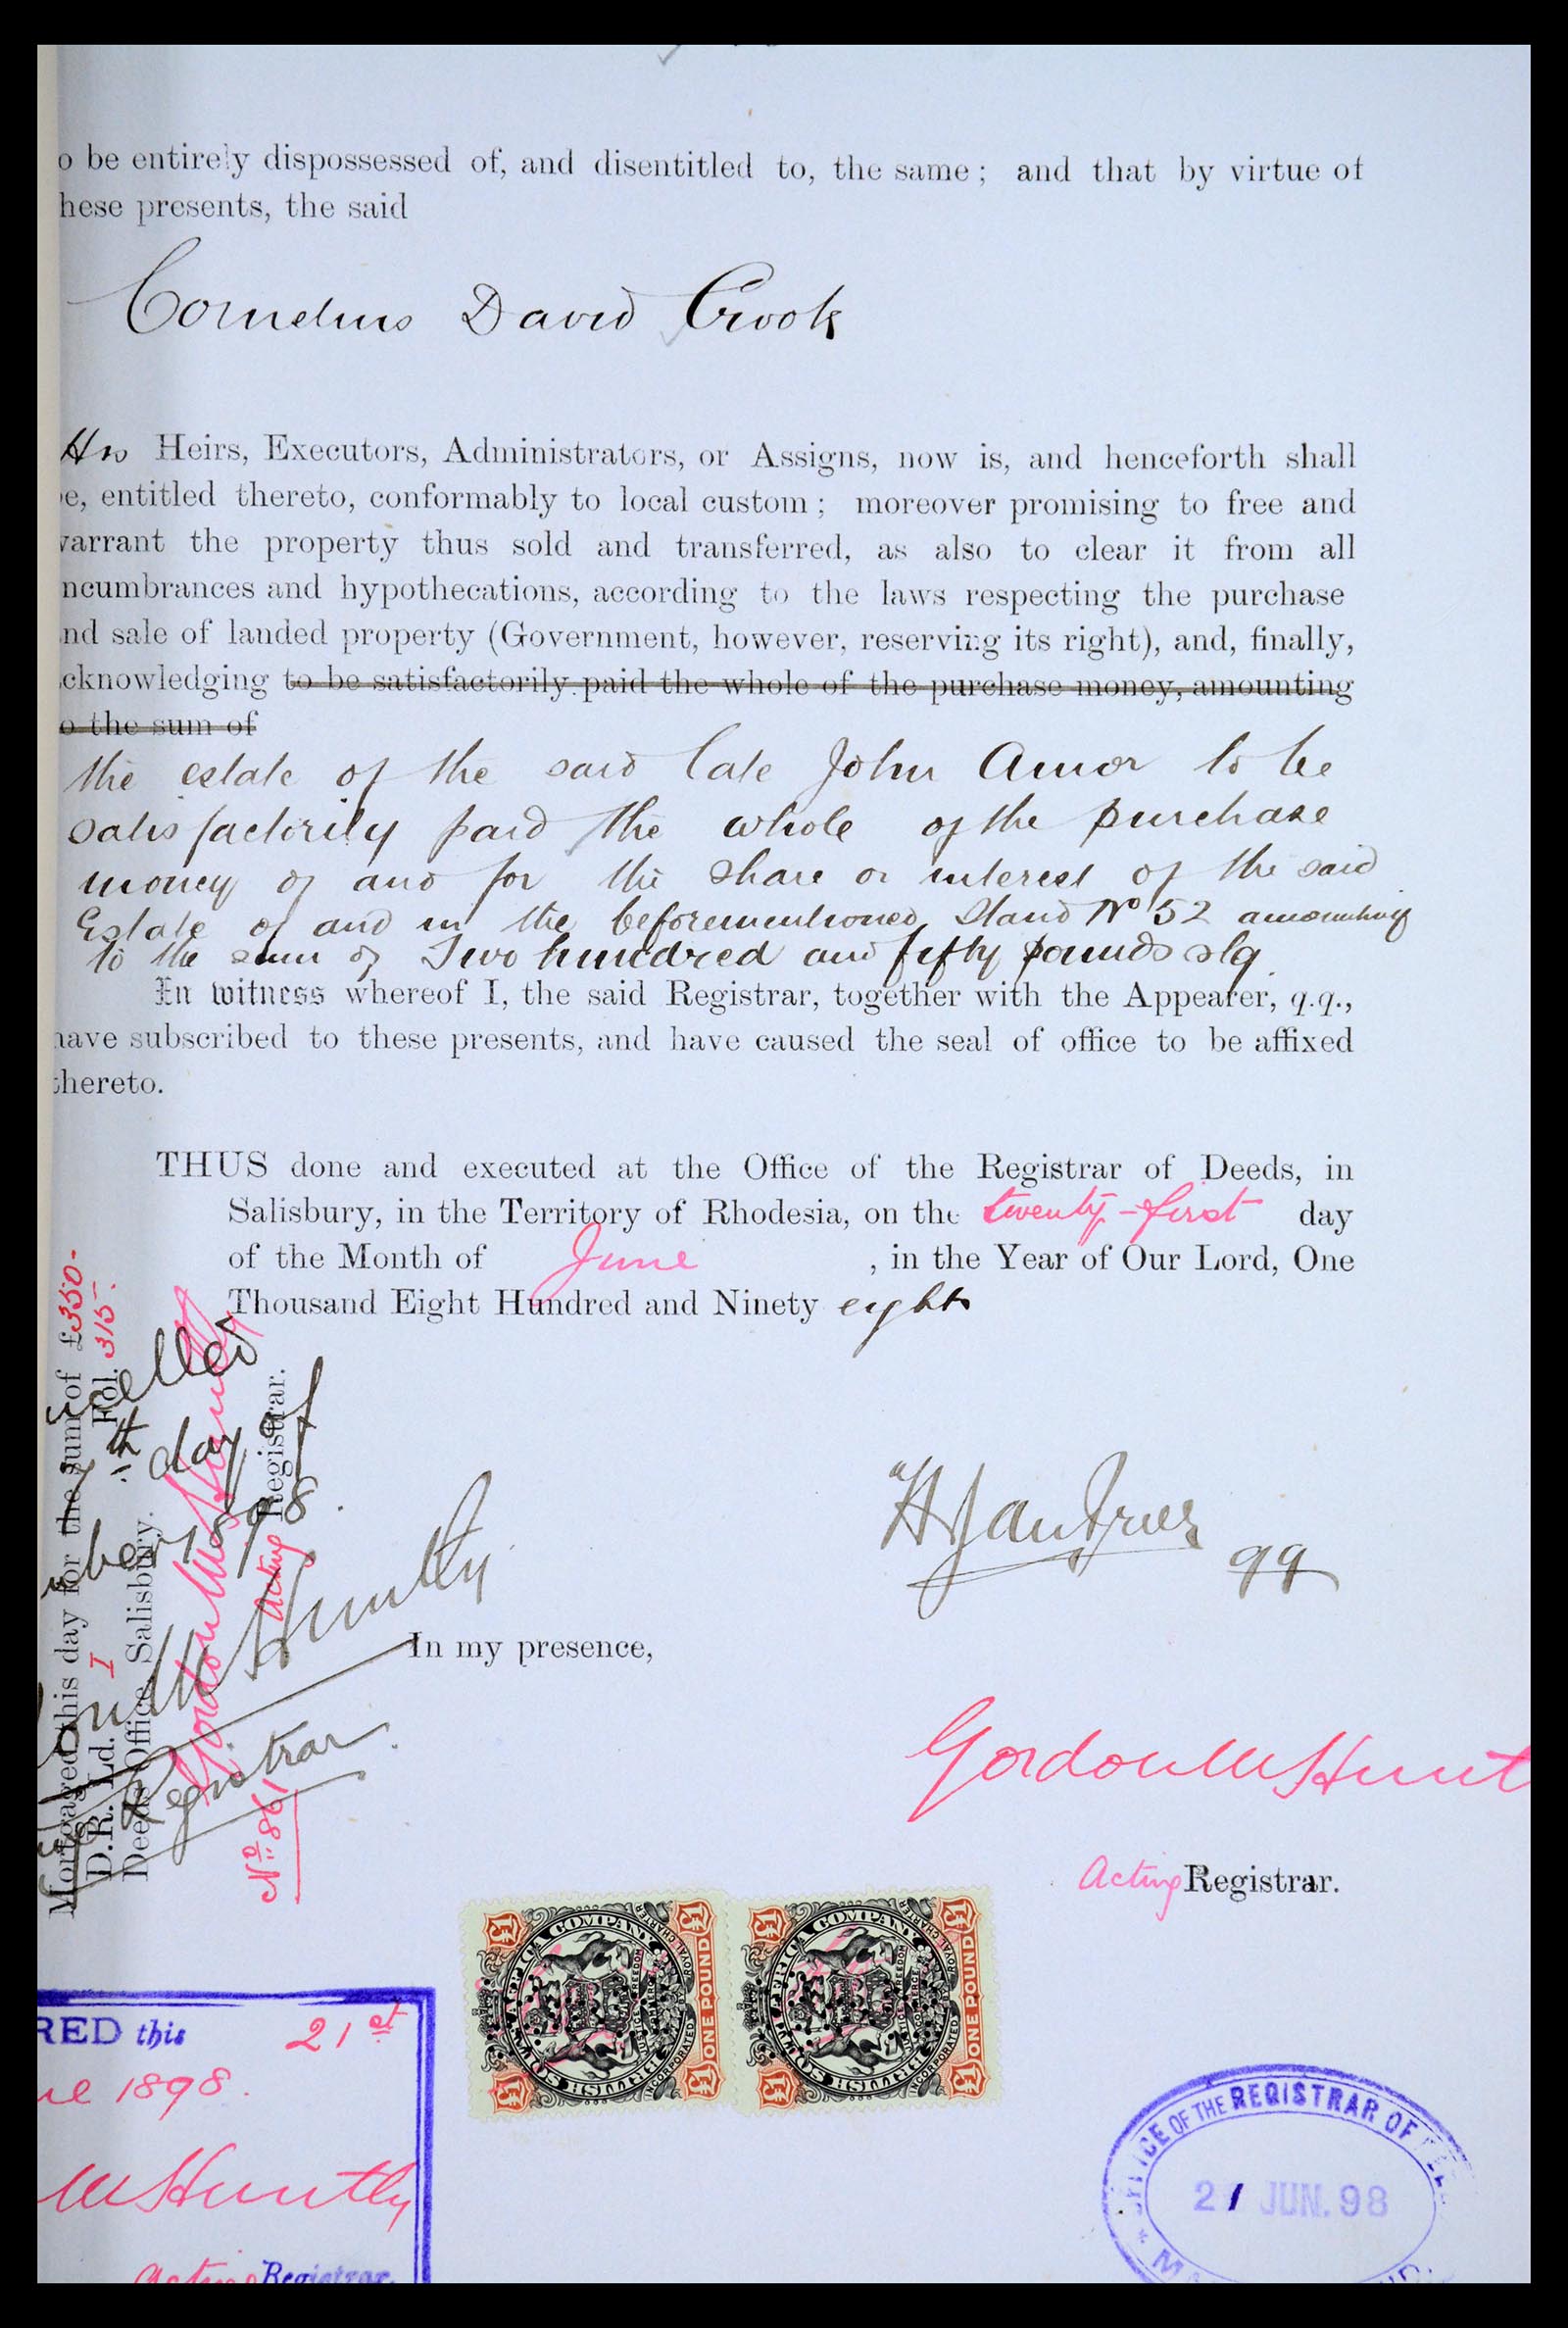 o be entirely dispossessed of, and disentitled to, the same; and that by virtue of
hese presents, the said
Cornelius David Crook
His Heirs, Executors, Administrators, or Assigns, now is, and henceforth shall
e, entitled thereto, conformably to local custom; moreover promising to free and
arrant the property thus sold and transferred, as also to clear it from all
ncumbrances and hypothecations, according to the laws respecting the purchase
nd sale of landed property (Government, however, reserving its right), and, finally,
cknowledging to be satisfactorily paid the whole of the purchase money, amounting
o the sum of
the estate of the said late John Amor to be
satisfactorily paid the whole of the purchase
money of and for the share or interest of the said
Estate of and in the beforementioned Stand No 52 amounting
to the sum of Two hundred and fifty pounds stg.
In witness whereof I, the said Registrar, together with the Appearer, q.q.,
have subscribed to these presents, and have caused the seal of office to be affixed
thereto.
THUS done and executed at the Office of the Registrar of Deeds, in
Salisbury, in the Territory of Rhodesia, on the twenty-first day
of the Month of June , in the Year of Our Lord, One
Thousand Eight Hundred and Ninety eight
Mortgaged this day for the sum of £350-
D.R. Ld. I Fol. 315.
Deeds Office, Salisbury.
Gordon M Huntly
Acting Registrar.
No 861
celled
th day of
ber 1898.
Huntly
Registrar.
qq
In my presence,
Gordon M Hunt
Acting Registrar.
BRITISH SOUTH AFRICA COMPANY
INCORPORATED ROYAL CHARTER
JUSTICE FREEDOM COMMERCE
£1 ONE POUND £1
BRITISH SOUTH AFRICA COMPANY
INCORPORATED ROYAL CHARTER
JUSTICE FREEDOM COMMERCE
£1 ONE POUND £1
RED this 21st
ne 1898.
M Huntly
Acting Registrar.
OFFICE OF THE REGISTRAR OF
21 JUN. 98